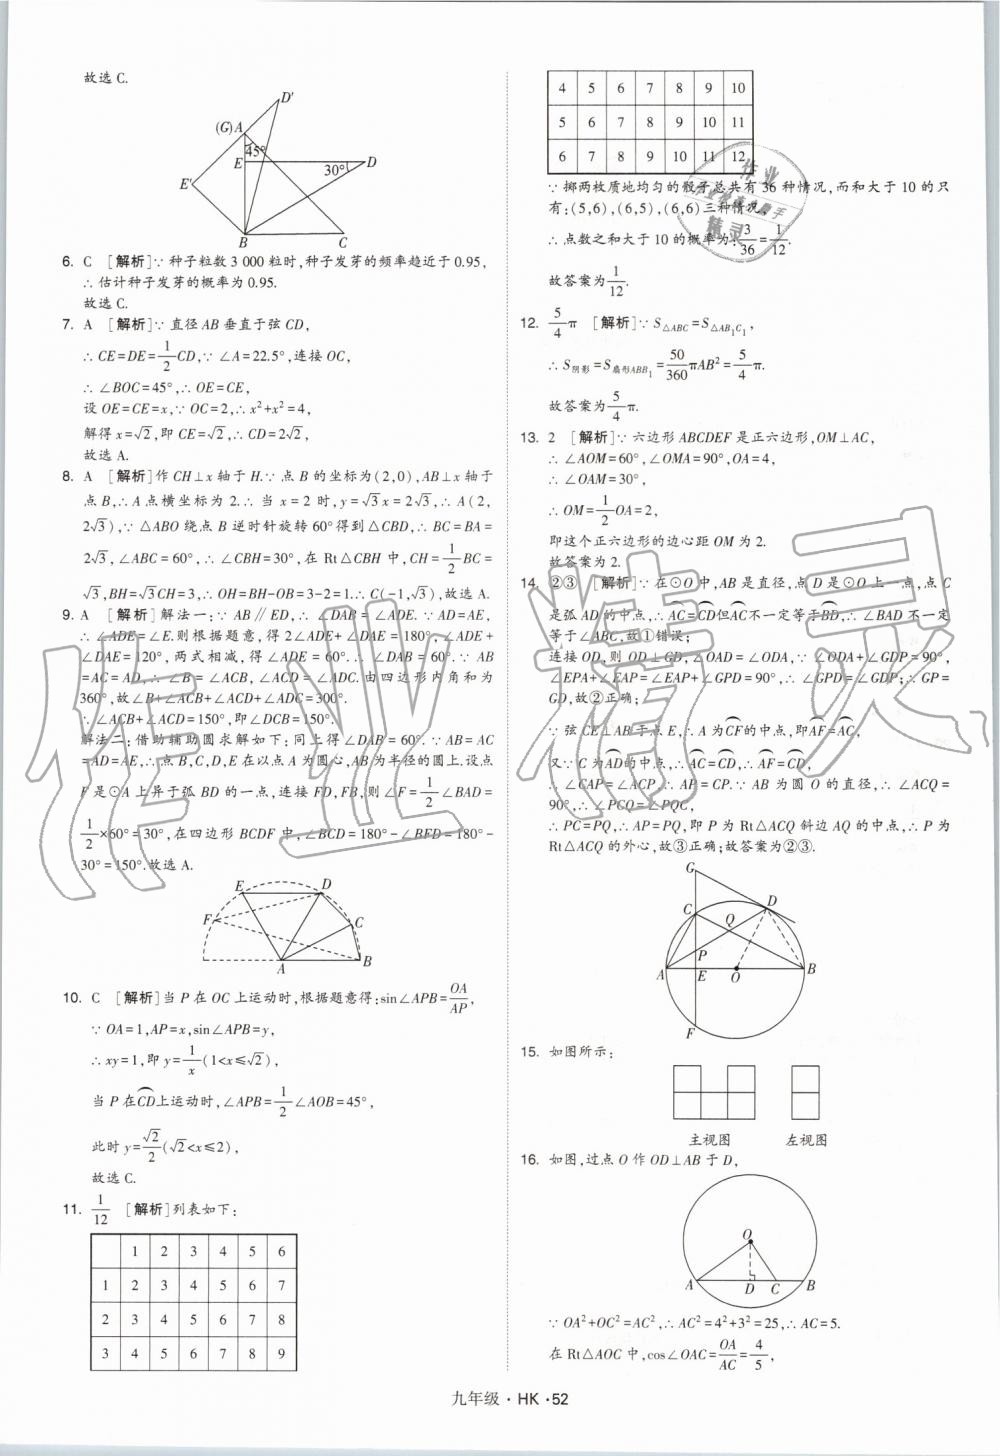 故选 C.
D′
(G)A
45°
E
30°
D
E′
B
C
6. C [解析]∵种子粒数3 000粒时,种子发芽的频率趋近于0.95,
∴估计种子发芽的概率为0.95.
故选 C.
7. A [解析]∵直径AB垂直于弦CD,
∴CE=DE=1/2CD,∵∠A=22.5°,连接OC,
∴∠BOC=45°,∴OE=CE,
设OE=CE=x,∵OC=2,∴x²+x²=4,
解得x=√2,即CE=√2,∴CD=2√2,
故选 A.
8. A [解析]作CH⊥x轴于H.∵点B的坐标为(2,0),AB⊥x轴于
点B,∴A点横坐标为2.∴当x=2时,y=√3x=2√3,∴A(2,
2√3),∵△ABO绕点B逆时针旋转60°得到△CBD,∴BC=BA=
2√3,∠ABC=60°,∴∠CBH=30°,在Rt△CBH中,CH=1/2BC=
√3,BH=√3CH=3,∴OH=BH-OB=3-2=1.∴C(-1,√3),故选A.
9. A [解析]解法一:∵AB∥ED,∴∠DAB=∠ADE.∵AD=AE,
∴∠ADE=∠E.则根据题意,得2∠ADE+∠DAE=180°,∠ADE+
∠DAE=120°,两式相减,得∠ADE=60°.∴∠DAB=60°.∵AB
=AC=AD,∴∠B=∠ACB,∠ACD=∠ADC.由四边形内角和为
360°,故∠B+∠ACB+∠ACD+∠ADC=300°.
∴∠ACB+∠ACD=150°,即∠DCB=150°.
解法二:借助辅助圆求解如下:同上得∠DAB=60°.∵AB=AC
=AD=AE,∴点B,C,D,E在以点A为圆心,AB为半径的圆上.设点
F是⊙A上异于弧BD的一点,连接FD,FB,则∠F=1/2∠BAD=
1/2×60°=30°,在四边形BCDF中,∠BCD=180°-∠BFD=180°-
30°=150°.故选A.
E
D
F
C
A
B
10. C [解析]当P在OC上运动时,根据题意得:sin∠APB=OA/AP,
∵OA=1,AP=x,sin∠APB=y,
∴xy=1,即y=1/x(1<x≤√2),
当P在C͡D上运动时,∠APB=1/2∠AOB=45°,
此时y=√2/2(√2<x≤2),
故选 C.
11. 1/12 [解析]列表如下:
1 2 3 4 5 6
1 2 3 4 5 6 7
2 3 4 5 6 7 8
3 4 5 6 7 8 9
4 5 6 7 8 9 10
5 6 7 8 9 10 11
6 7 8 9 10 11 12
∵掷两枚质地均匀的骰子总共有36种情况,而和大于10的只
有:(5,6),(6,5),(6,6)三种情况,
∴点数之和大于10的概率为:3/36=1/12.
故答案为1/12.
12. 5/4π [解析]∵S△ABC=S△AB₁C₁,
∴S阴影=S扇形ABB₁=50/360πAB²=5/4π.
故答案为5/4π.
13. 2 [解析]∵六边形ABCDEF是正六边形,OM⊥AC,
∴∠AOM=60°,∠OMA=90°,OA=4,
∴∠OAM=30°,
∴OM=1/2OA=2,
即这个正六边形的边心距OM为2.
故答案为2.
14. ②③ [解析]∵在⊙O中,AB是直径,点D是⊙O上一点,点C
是弧AD的中点,∴A͡C=C͡D但A͡C不一定等于B͡D,∴∠BAD不一定
等于∠ABC,故①错误;
连接OD,则OD⊥GD,∠OAD=∠ODA,∵∠ODA+∠GDP=90°,
∠EPA+∠EAP=∠EAP+∠GPD=90°,∴∠GPD=∠GDP;∴GP=
GD,故②正确;
∵弦CE⊥AB于点E,∴A为C͡F的中点,即A͡F=A͡C,
又∵C为A͡D的中点,∴A͡C=C͡D,∴A͡F=C͡D,
∴∠CAP=∠ACP,∴AP=CP.∵AB为圆O的直径,∴∠ACQ=
90°,∴∠PCQ=∠PQC,
∴PC=PQ,∴AP=PQ,即P为Rt△ACQ斜边AQ的中点,∴P为
Rt△ACQ的外心,故③正确;故答案为②③.
G
C
D
Q
P
A
E
O
B
F
15. 如图所示:
主视图 左视图
16. 如图,过点O作OD⊥AB于D,
O
A
D
C
B
∵OA²+OC²=AC²,∴AC²=4²+3²=25,∴AC=5.
在Rt△AOC中,cos∠OAC=OA/AC=4/5,
九年级·HK·52
作业精灵
作业
精灵